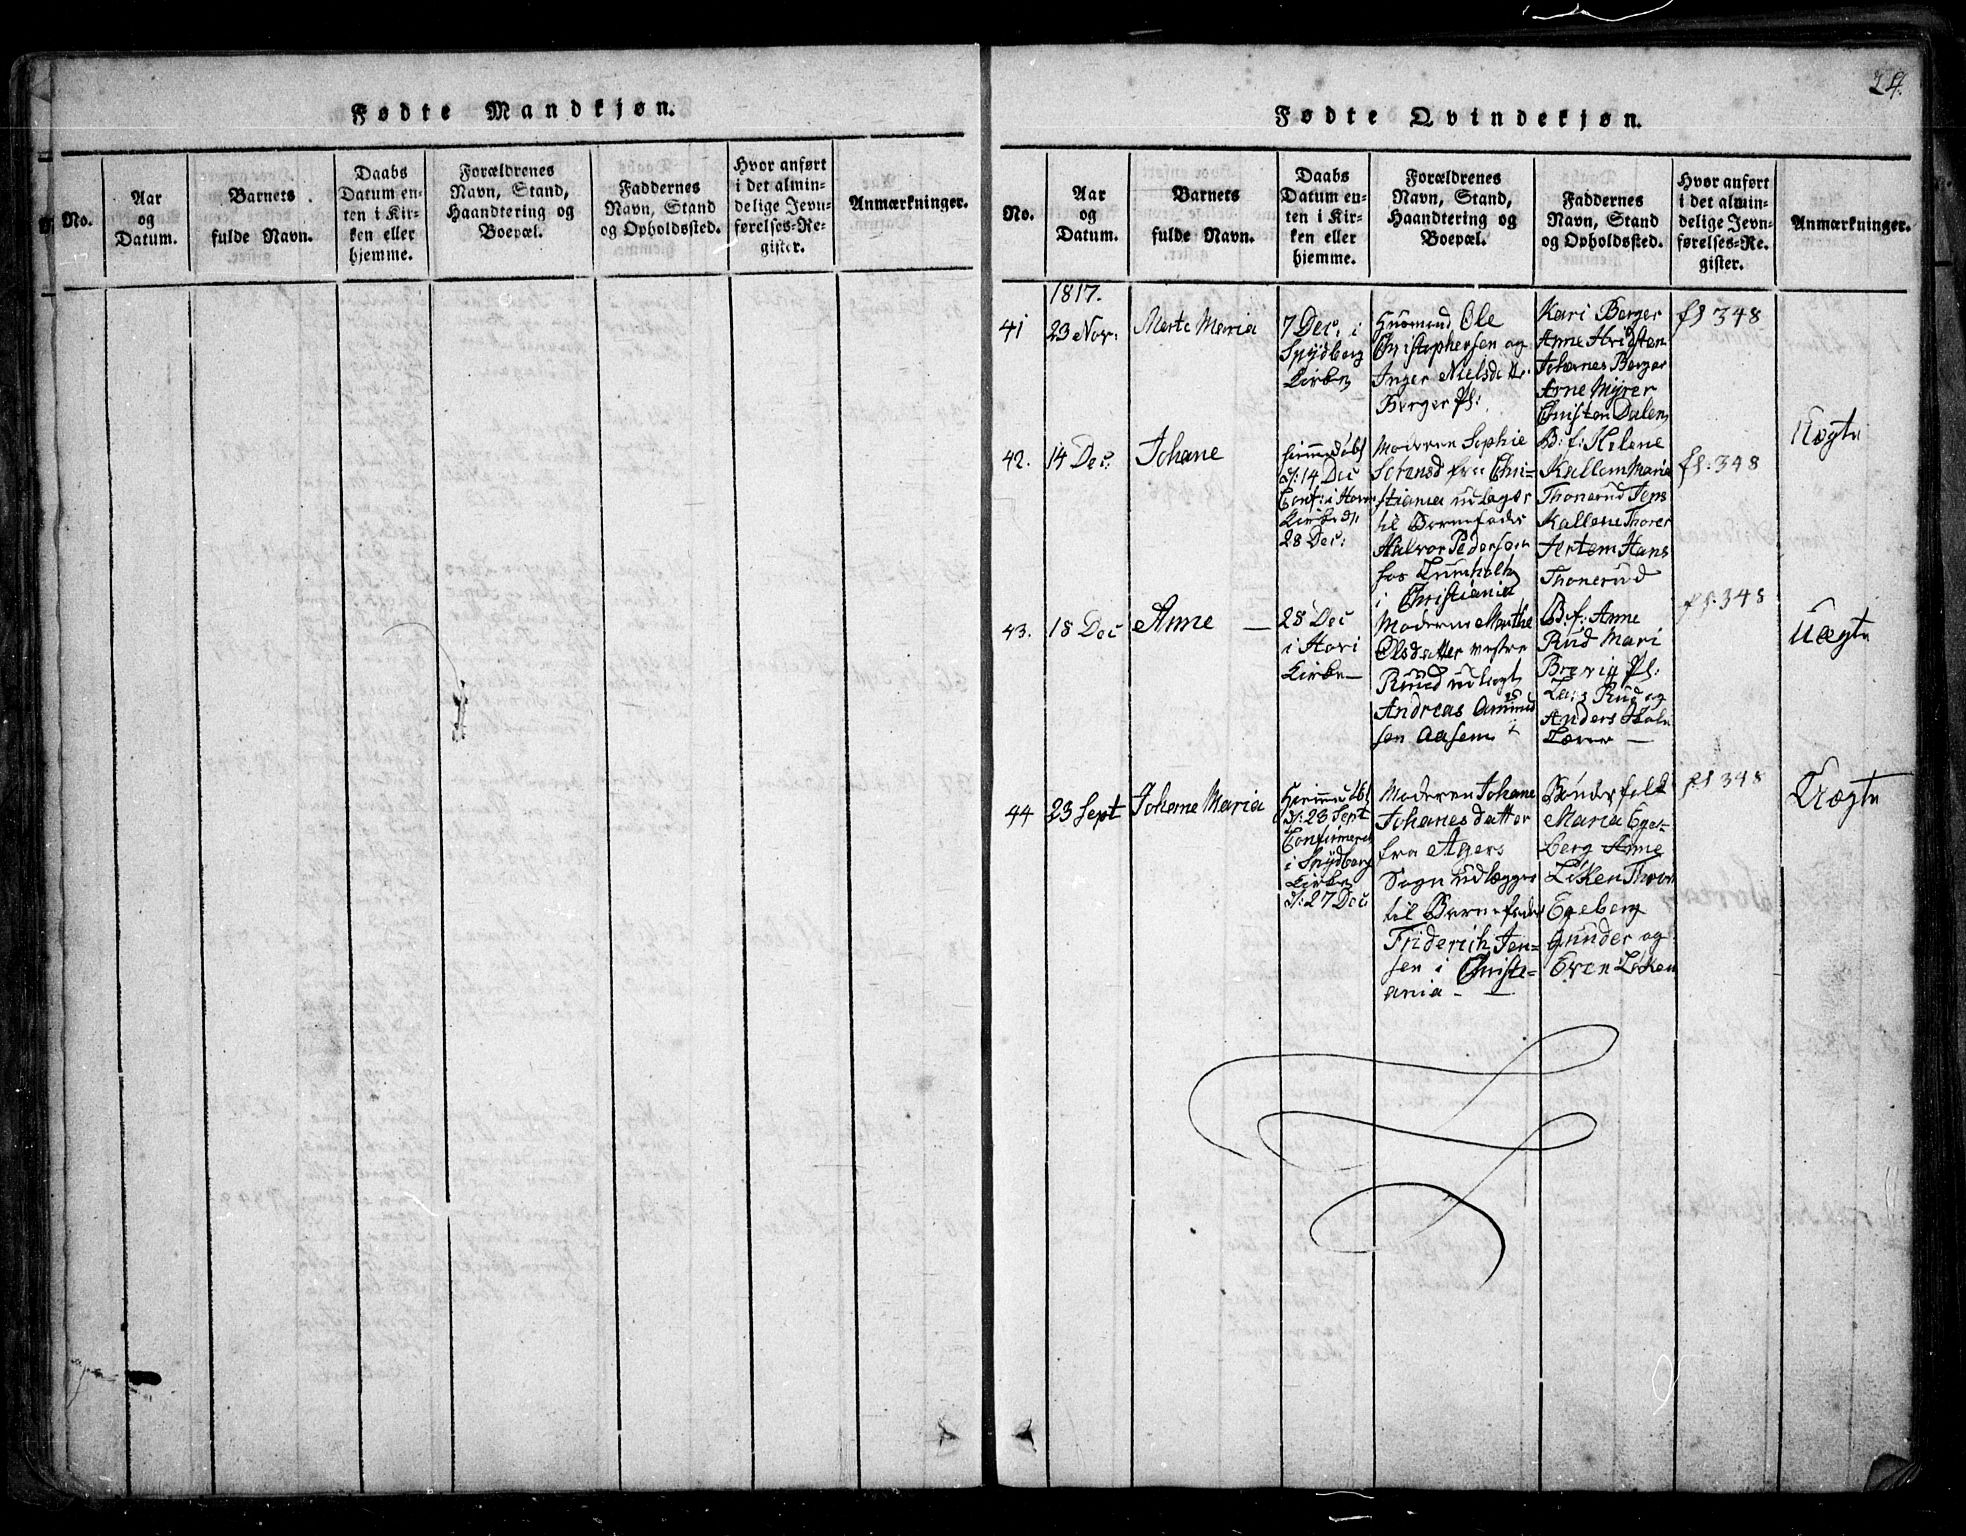 24.
Fødte Mandkjøn.
No.
Aar
og
Datum.
Barnets
fulde Navn.
Daabs
Datum en-
ten i Kir-
ken eller
hjemme.
Forældrenes
Navn, Stand,
Haandtering og
Boepæl.
Faddernes
Navn, Stand
og Opholdssted.
Hvor anført
i det almin-
delige Jevn-
førelses-Re-
gister.
Anmærkninger.
Fødte Qvindekjøn.
No.
Aar
og
Datum.
Barnets
fulde Navn.
Daabs
Datum en-
ten i Kir-
ken eller
hjemme.
Forældrenes
Navn, Stand,
Haandtering og
Boepæl.
Faddernes
Navn, Stand
og Opholdssted.
Hvor anført
i det almin-
delige Jevn-
førelses-Re-
gister.
Anmærkninger.
1817.
41
23 Nov:
Merte Maria
7 Dec: i
Spydberg
Kirke
Huusmand Ole
Christophersen og
Inger Nielsdatter
Berger Pl:
Kari Berger
Anne Hridsten
Johannes Berger
Arne Myrer
Christen Dalen
fl 348
42.
14 Dec:
Johane
hiemmedøbt
d: 14 Dec
Conf: i Hovi
Kirke d:
28 Dec:
Moderen Sophie
Sørensd fra Chri-
stiania udlagde
til Barnefader
Halvor Pedersen
hos Tumholtz
i Christiania
B: f: Helene
Kallem Maria
Thonerud Jens
Kallene Thorer
Hertem Hans
Thonerud
fl: 348
Uægte
43.
18 Dec
Anne —
28 Dec
i Hovi
Kirke —
Moderen Marthe
Olsdatter vestre
Ruud udlagt
Andreas Amund
sen Aasem
B: f: Anne
Rud Mari
Brevig Pl:
Lars Rud og
Anders Hole
—
fl. 348
Uægte
44
23 Sept
Johane Maria
Hiemmedøbt
d: 23 Sept
Confirmeret
i Spydberg
Kirke
d: 27 Dec
Moderen Johane
Johanesdatter
fra Agers
Sogn udlægger
til Barnefader
Friderich Jen-
sen i Christi-
ania —
Bønderfolk
Maria Ege-
berg Anne
Løken Thron
Egeberg
Gunder og
Even Løken
fl 348
Uægte